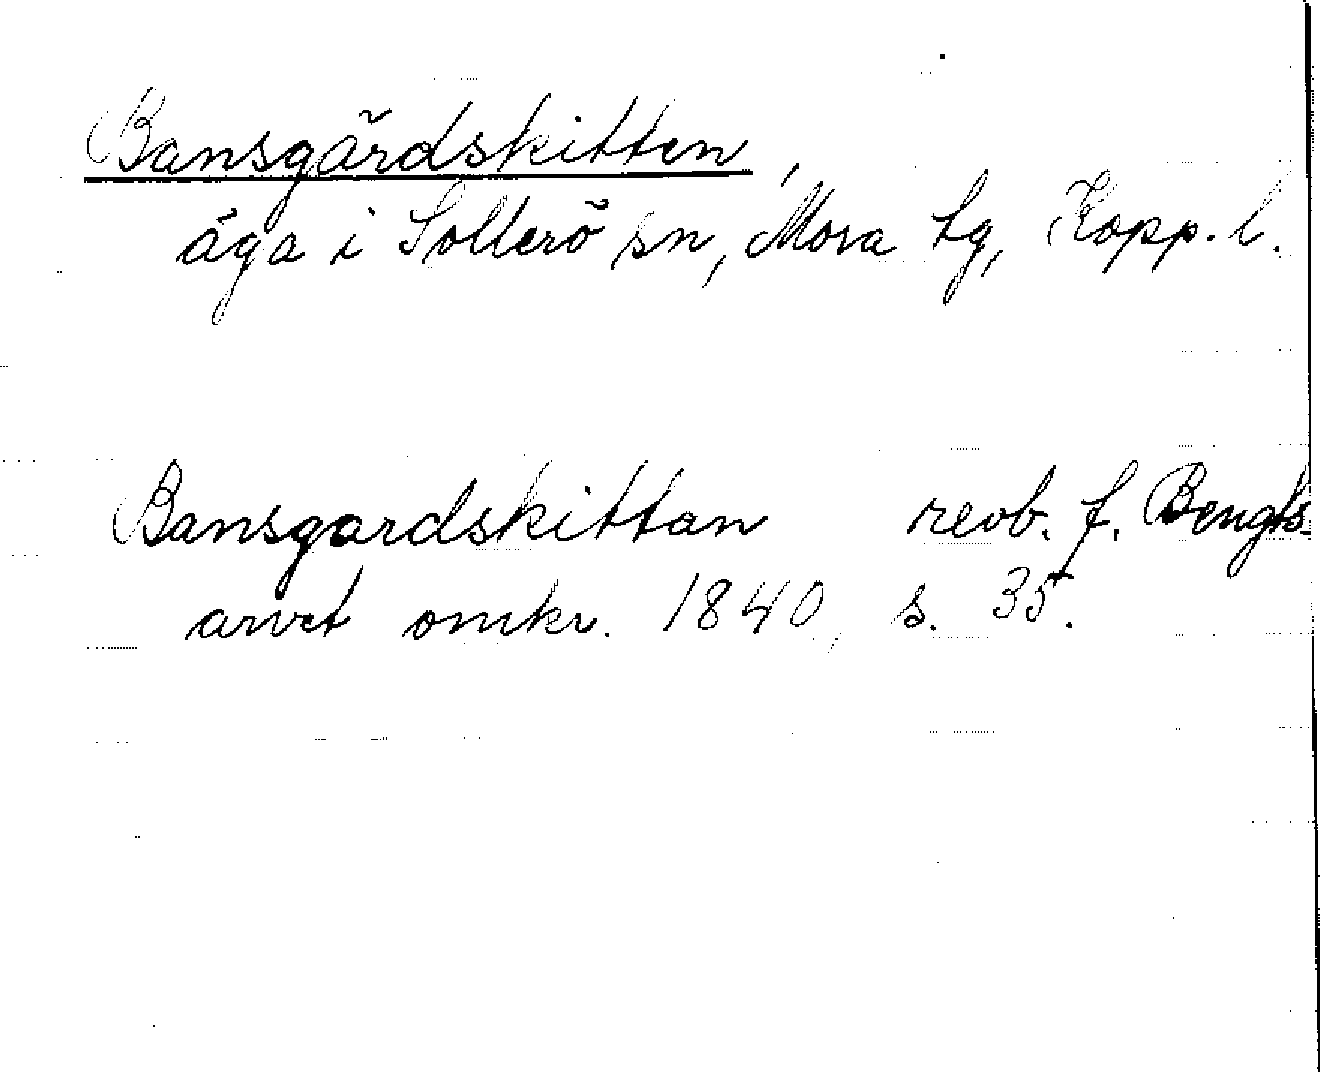 Bansgårdskitten,
äga i Sollerö sn, Mora tg, Kopp. l.
Bansgardskittan revb. f. Bengts
arvet omkr. 1840, s. 35.